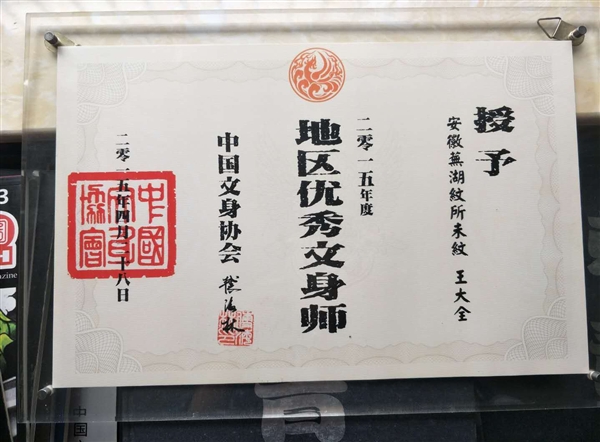 授予
安徽蕪湖紋所未紋 王大全
二零一五年度
地区优秀文身师
中国文身协会
二零一五年四月二十八日
中國文身協會
3
azine
中国